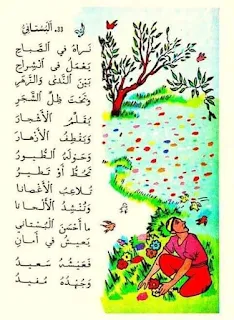 33. اَلْبُسْتَانِيُّ
نَرَاهُ فِي الصَّبَاحِ
يَعْمَلُ فِي انْشِرَاحِ
بَيْنَ النَّدَى وَالزَّهْرِ
وَتَحْتَ ظِلِّ الشَّجَرِ
يُقَلِّمُ الْأَشْجَارَ
وَيَقْطِفُ الْأَزْهَارَ
وَحَوْلَهُ الطُّيُورُ
تَحُطُّ أَوْ تَطِيرُ
تُلَاعِبُ الْأَغْصَانَا
وَتُنْشِدُ الْأَلْحَانَا
مَا أَحْسَنَ الْبُسْتَانِي
يَعِيشُ فِي أَمَانِ
فَعَيْشُهُ سَعِيدُ
وَجُهْدُهُ مُفِيدُ